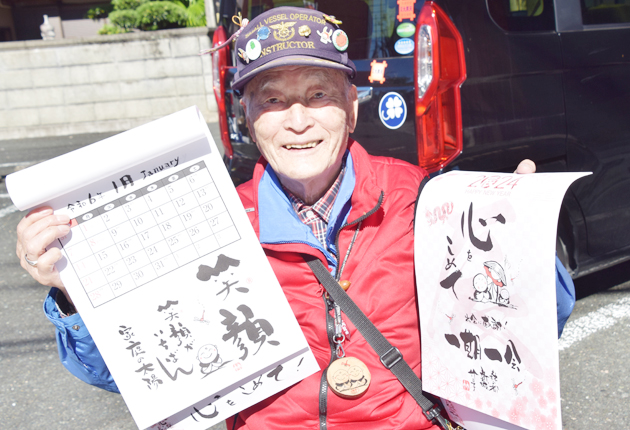 SMALL VESSEL OPERATOR
INSTRUCTOR
令和6年 1月 January
1 2 3 4 5 6
7 8 9 10 11 12 13
14 15 16 17 18 19 20
21 22 23 24 25 26 27
28 29 30 31
笑顔
笑顔が
いちばん
家庭の太陽
心をこめて!
2024
心をこめて
一期一会